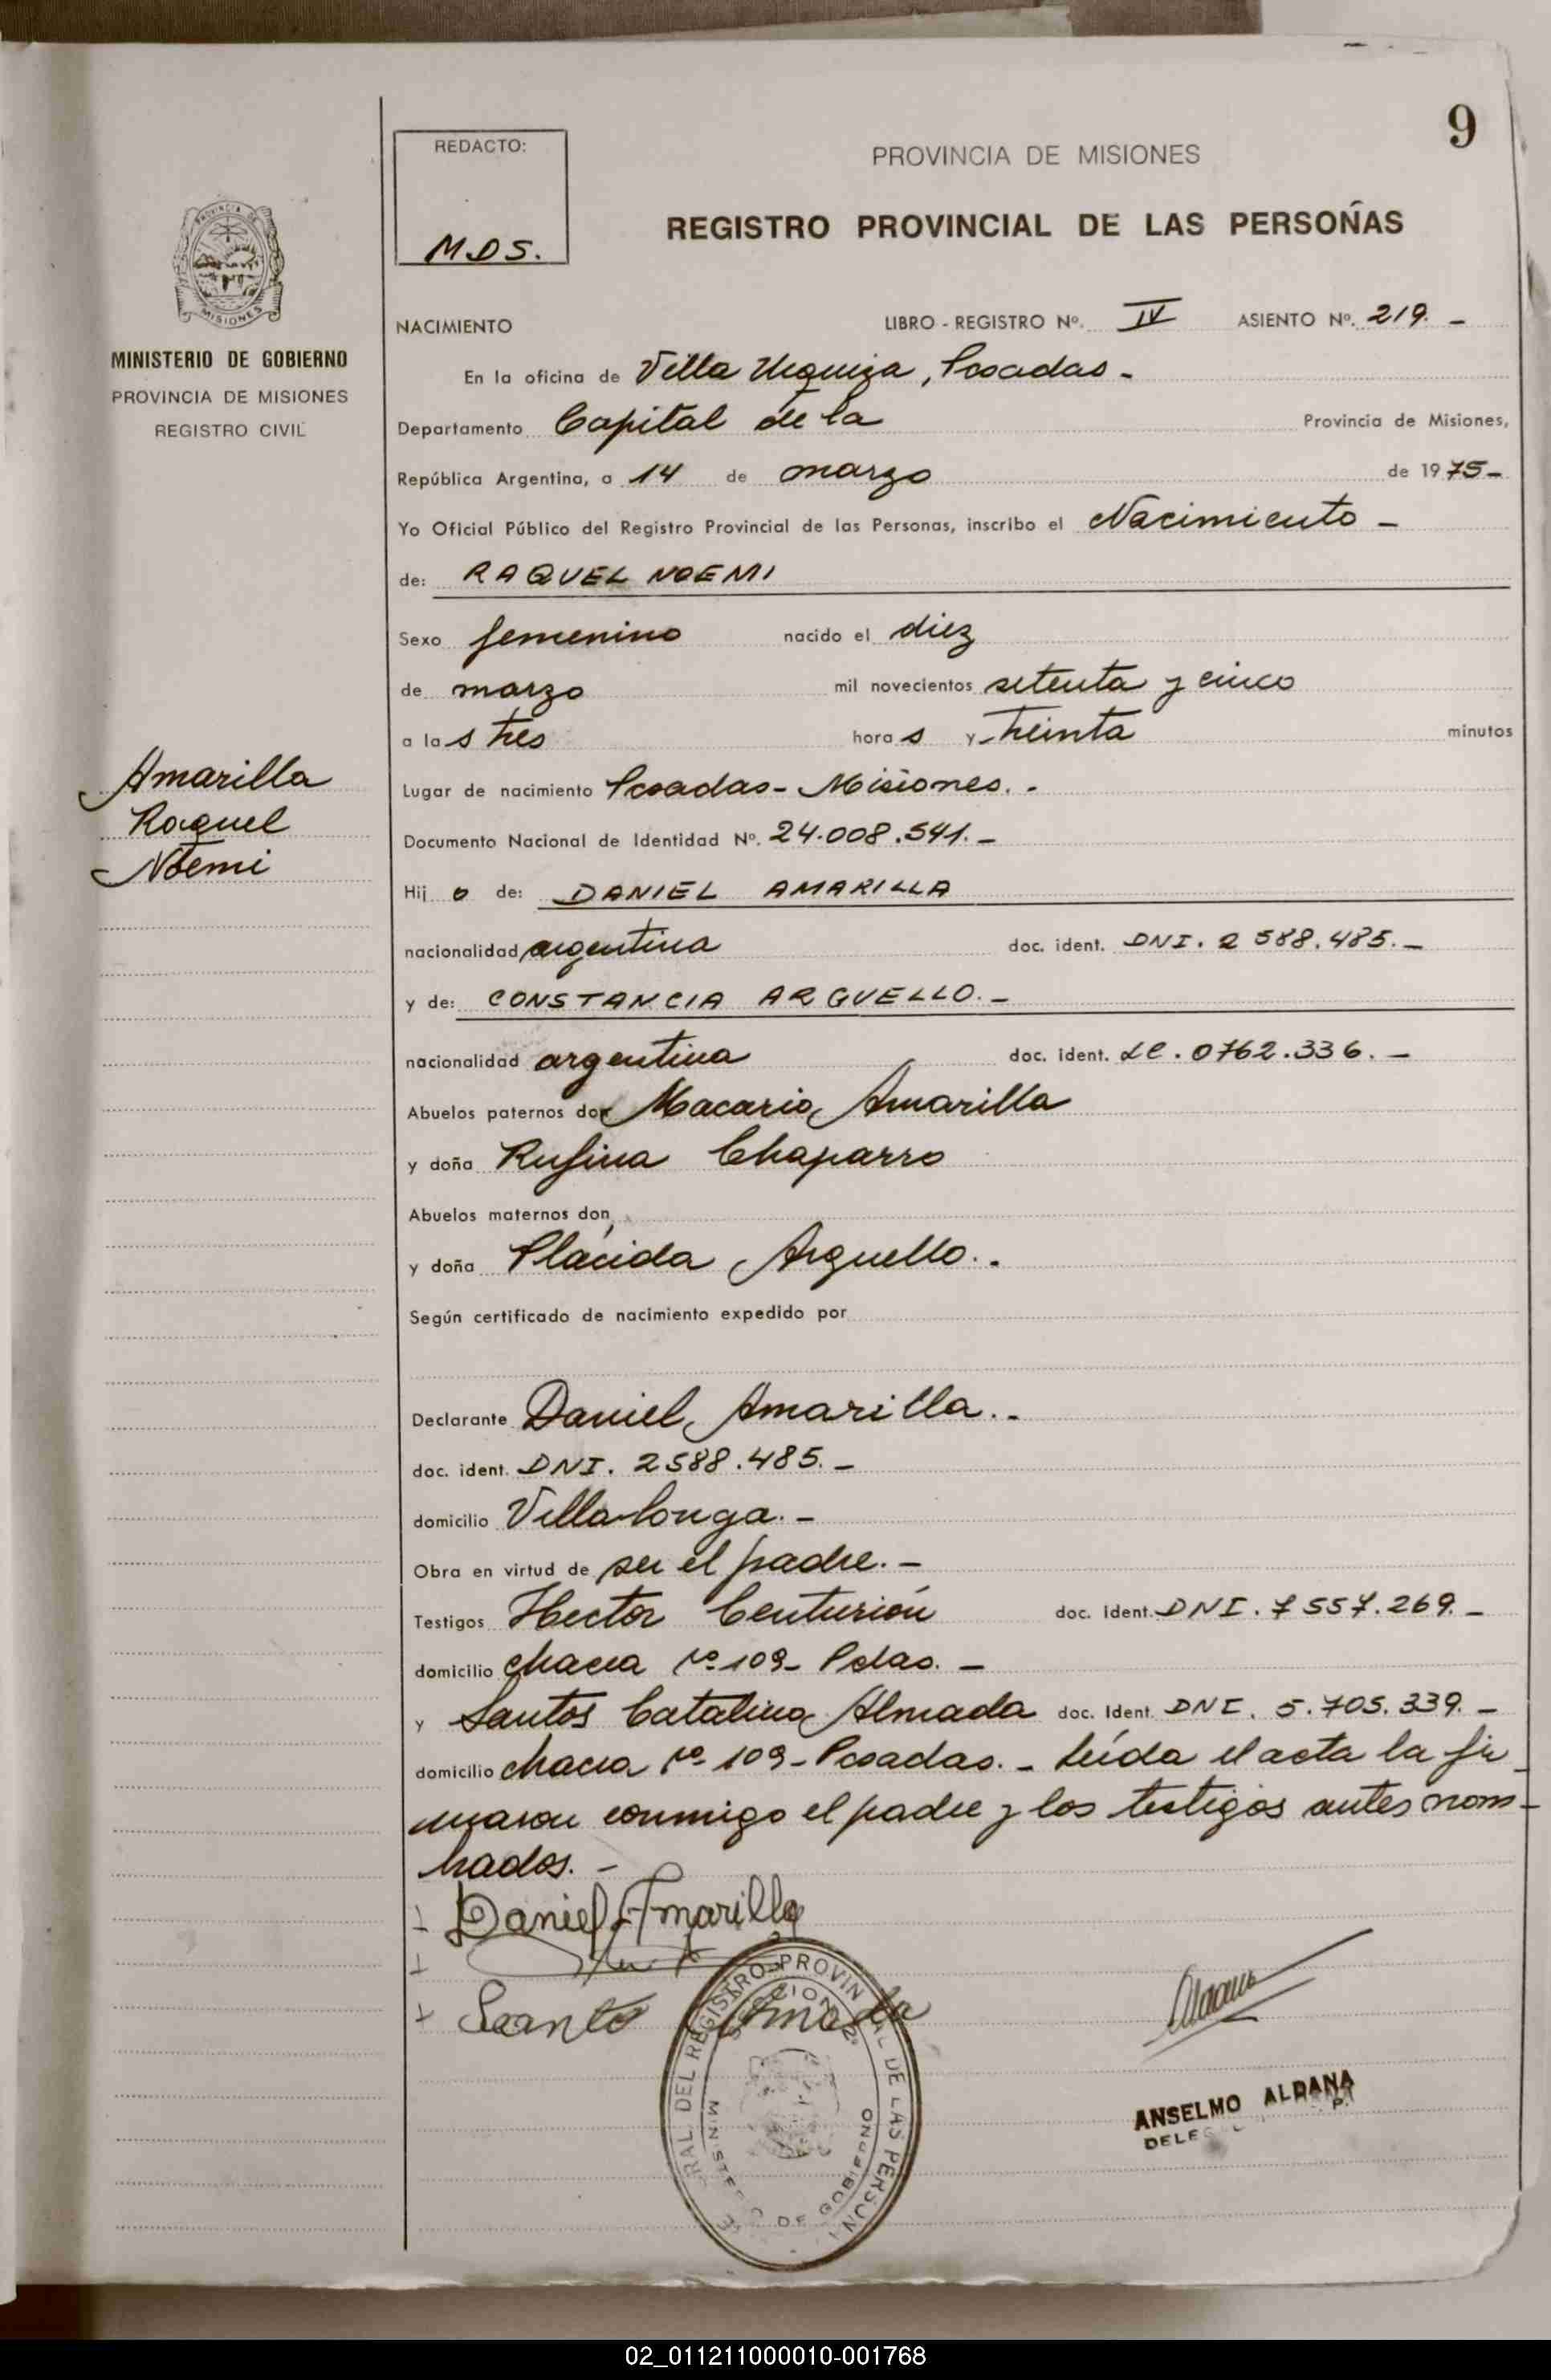 9
REDACTO:
M.D.S.
PROVINCIA DE MISIONES
REGISTRO PROVINCIAL DE LAS PERSOÑAS
PROVINCIA DE
MISIONES
MINISTERIO DE GOBIERNO
PROVINCIA DE MISIONES
REGISTRO CIVIL
NACIMIENTO LIBRO - REGISTRO Nº. IV ASIENTO Nº. 219. -
En la oficina de Villa Urquiza, Posadas -
Departamento Capital de la Provincia de Misiones,
República Argentina, a 14 de marzo de 1975 -
Yo Oficial Público del Registro Provincial de las Personas, inscribo el Nacimiento -
de: RAQUEL NOEMI
Sexo femenino nacido el diez
de marzo mil novecientos setenta y cinco
a las tres horas y treinta minutos
Amarilla
Raquel
Noemi
Lugar de nacimiento Posadas - Misiones. -
Documento Nacional de Identidad Nº. 24.008.541. -
Hijo de: DANIEL AMARILLA
nacionalidad argentina doc. ident. DNI. 2 588.485. -
y de: CONSTANCIA ARGUELLO. -
nacionalidad argentina doc. ident. LC. 0762.336. -
Abuelos paternos don Macario Amarilla
y doña Rufina Chaparro
Abuelos maternos don
y doña Plácida Arguello. -
Según certificado de nacimiento expedido por
Declarante Daniel Amarilla. -
doc. ident. DNI. 2588.485. -
domicilio Villalonga. -
Obra en virtud de ser el padre. -
Testigos Hector Centurión doc. ident. DNI. 7557.269. -
domicilio chacra Nº 109 - Pdas. -
y Santos Catalino Almada doc. Ident. DNI. 5.705.339. -
domicilio chacra Nº 109 - Posadas. - Leída el acta la fir-
maron conmigo el padre y los testigos antes nom-
brados. -
Daniel Amarilla
Santo Almada
RAL DEL REGISTRO PROVINCIAL DE LAS PERSONA
MINISTERIO DE GOBIERNO
ANSELMO ALDANA
02_011211000010-001768